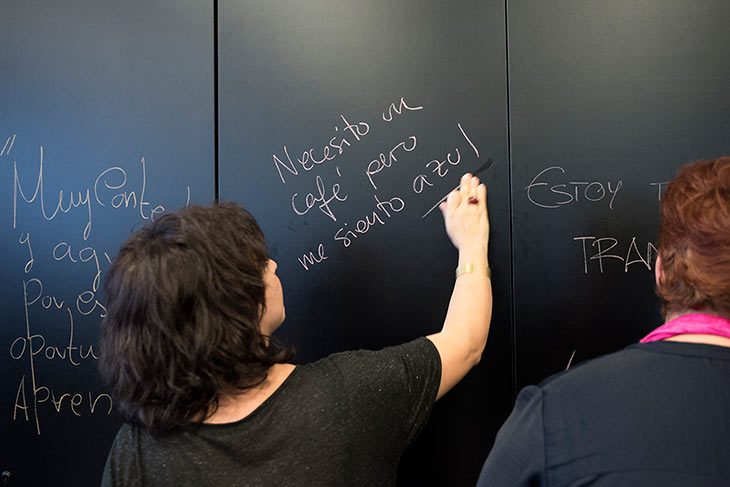 Muy Conte
y agr
Por es
oportu
Apren
Necesito un
café pero
me siento azul
ESTOY T
TRAN